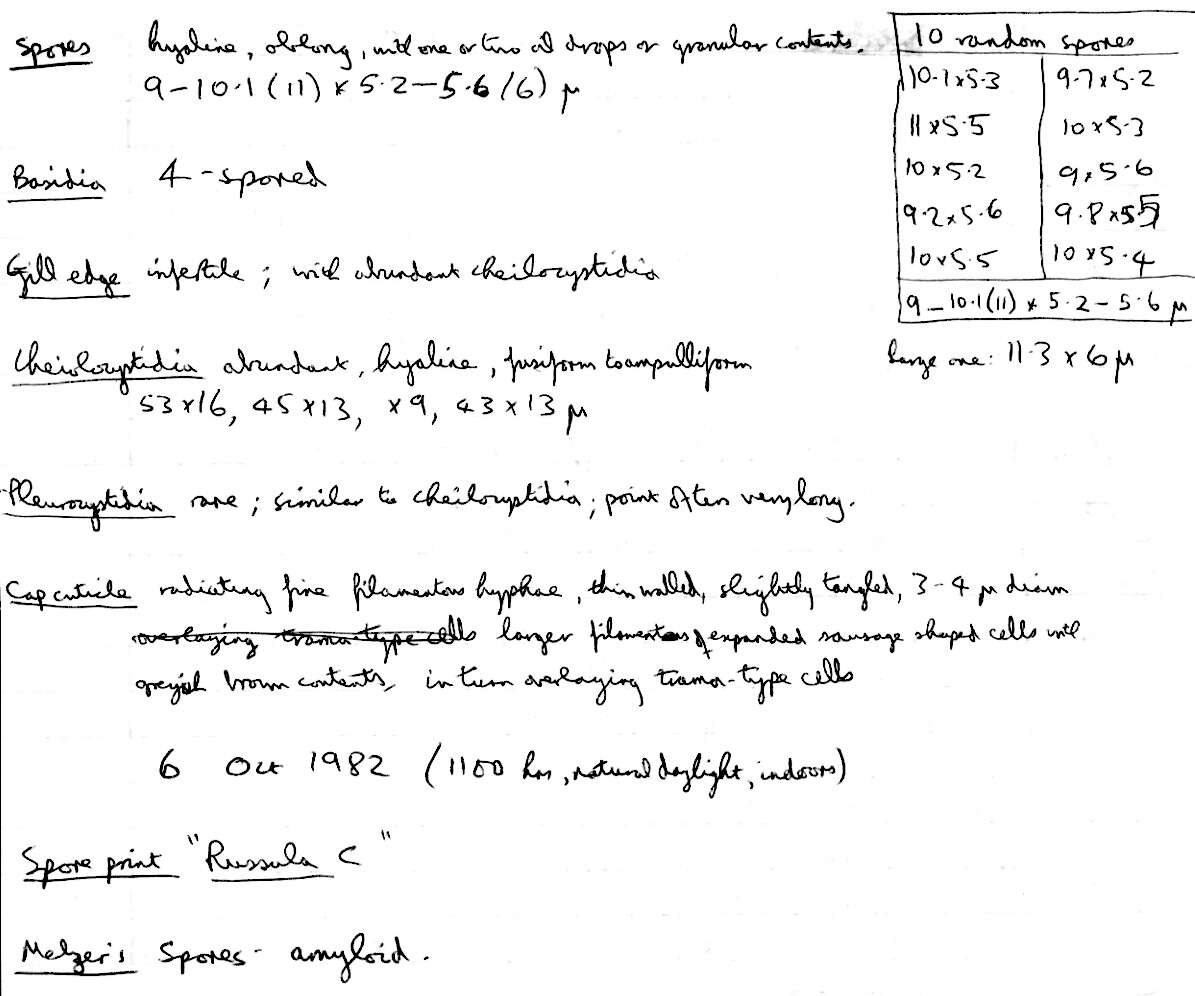 Spores hyaline, oblong, with one or two oil drops or granular contents.
9-10.1 (11) x 5.2-5.6 (6) μ
Basidia 4-spored
Gill edge infertile; with abundant cheilocystidia
Cheilocystidia abundant, hyaline, fusiform to ampulliform
53x16, 45x13, x9, 43x13 μ
Pleurocystidia rare; similar to cheilocystidia; point often very long.
Cap cuticle radiating fine filamentous hyphae, thin walled, slightly tangled, 3-4 μ diam
overlaying trama-type cells larger filaments of expanded sausage shaped cells with
greyish brown contents, in turn overlaying trama-type cells
6 Oct 1982 (1100 hrs, natural daylight, indoors)
Spore print "Russula C"
Melzer's Spores - amyloid.
10 random spores
10.1x5.3 9.7x5.2
11x5.5 10x5.3
10x5.2 9x5.6
9.2x5.6 9.8x5.5
10x5.5 10x5.4
9-10.1(11) x 5.2-5.6 μ
Large one: 11.3 x 6 μ